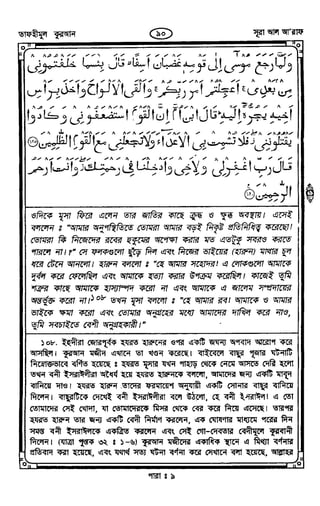 তাফহীমুল কুরআন
৯০
সূরা আল আ'রাফ
وَلَمَّا رَجَعَ مُوسَىٰ إِلَىٰ قَوْمِهِ غَضْبَانَ أَسِفًا قَالَ بِئْسَمَا خَلَفْتُمُونِي
مِن بَعْدِي أَعَجِلْتُمْ أَمْرَ رَبِّكُمْ وَأَلْقَى الْأَلْوَاحَ وَأَخَذَ بِرَأْسِ
أَخِيهِ يَجُرُّهُ إِلَيْهِ قَالَ ابْنَ أُمَّ إِنَّ الْقَوْمَ اسْتَضْعَفُونِي وَكَادُوا
يَقْتُلُونَنِي فَلَا تُشْمِتْ بِيَ الْأَعْدَاءَ وَلَا تَجْعَلْنِي مَعَ الْقَوْمِ الظَّالِمِينَ
قَالَ رَبِّ اغْفِرْ لِي وَلِأَخِي وَأَدْخِلْنَا فِي رَحْمَتِكَ وَأَنتَ أَرْحَمُ
الرَّاحِمِينَ
ওদিকে মূসা ফিরে এলেন তার জাতির কাছে ক্রুদ্ধ ও ক্ষুব্ধ অবস্থায়। এসেই
বললেন ঃ "আমার অনুপস্থিতিতে তোমরা আমার বড়ই নিকৃষ্ট প্রতিনিধিত্ব করেছো।
তোমরা কি নিজেদের রবের হুকুমের অপেক্ষা করার মত এতটুকু সবরও করতে
পারলে না।" সে ফলকগুলো ছুঁড়ে দিল এবং নিজের ভাইয়ের (হারুন) মাথার চুল
ধরে টেনে আনলো। হারুন বললো ঃ "হে আমার সহোদর! এ লোকগুলো আমাকে
দুর্বল করে ফেলেছিল এবং আমাকে হত্যা করার উপক্রম করেছিল। কাজেই তুমি
শত্রুর কাছে আমাকে হাস্যাস্পদ করো না এবং আমাকে এ জালেম সম্প্রদায়ের
অন্তর্ভুক্ত করো না।১০৮ তখন মূসা বললো ঃ "হে আমার রব! আমাকে ও আমার
ভাইকে ক্ষমা করো এবং তোমার অনুগ্রহের মধ্যে আমাদের দাখিল করে নাও,
তুমি সবচাইতে বেশী অনুগ্রহকারী।"
১০৮. ইহুদীরা জোরপূর্বক হযরত হারুনের ওপর একটি জঘন্য অপবাদ আরোপ করে
আসছিল। কুরআন মজীদ এখানে তা খণ্ডন করেছে। বাইবেলে বাছুর পূজার ঘটনাটি
নিম্নোক্তভাবে বর্ণিত হয়েছে ঃ হযরত মূসার যখন পাহাড় থেকে নেমে আসতে দেরি হলো
তখন বনী ইসরাঈলীরা অধৈর্য হয়ে হযরত হারুনকে বললো, আমাদের জন্য একটি মাবুদ
বানিয়ে দাও। হযরত হারুন তাদের ফরমায়েশ অনুযায়ী একটি সোনার বাছুর বানিয়ে
দিলেন। বাছুরটিকে দেখেই বনী ইসরাঈলীরা বলে উঠলো, হে বনী ইসরাঈল! এ তো
তোমাদের সেই খোদা, যা তোমাদেরকে মিসর থেকে বের করে নিয়ে এসেছে। তারপর
হযরত হারুন তার জন্য একটি বেদী নির্মাণ করলেন, এক ঘোষণার মাধ্যমে পরের দিন
সমস্ত বনী ইসরাঈলকে একত্রিত করলেন এবং সেই গো-দেবতার বেদীমূলে কুরবানী
দিলেন। (যাত্রা পুস্তক ৩২ ঃ ১-৬) কুরআন মজীদের একাধিক স্থানে এ মিথ্যা বর্ণনার
প্রতিবাদ করা হয়েছে, এবং যথার্থ সত্য ঘটনা বর্ণনা করে সেখানে বলা হয়েছে, আল্লাহর
পারা ঃ ৯